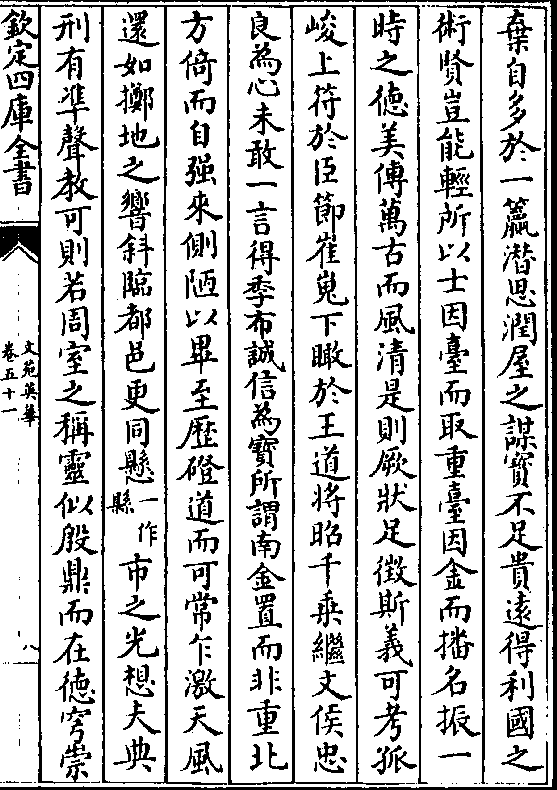 棄自多於一籯潜思潤屋之謀寳不足貴遠得利國之
術賢豈能輕所以士因臺而取重臺因金而播名振一
時之德美傳萬古而風清是則厥狀足徴斯義可考孤
峻上符於臣節崔嵬下瞰於王道將昭千乗繼文侯忠
良為心未敢一言得季布誠信為寳所謂南金置而非重北
方倚而自强來側陋以畢至歴磴道而可常乍激天風
還如擲地之響斜臨都邑更同懸一作縣市之光想夫典
刑有凖聲教可則若周室之稱靈似殷鼎而在德穹崇
欽定四庫全書
文苑英華
卷五十一
八